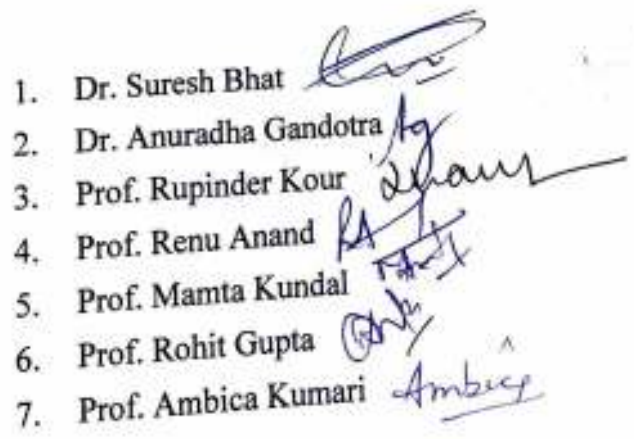 1. Dr. Suresh Bhat
2. Dr. Anuradha Gandotra
3. Prof. Rupinder Kour
4. Prof. Renu Anand
5. Prof. Mamta Kundal
6. Prof. Rohit Gupta
7. Prof. Ambica Kumari Ambica